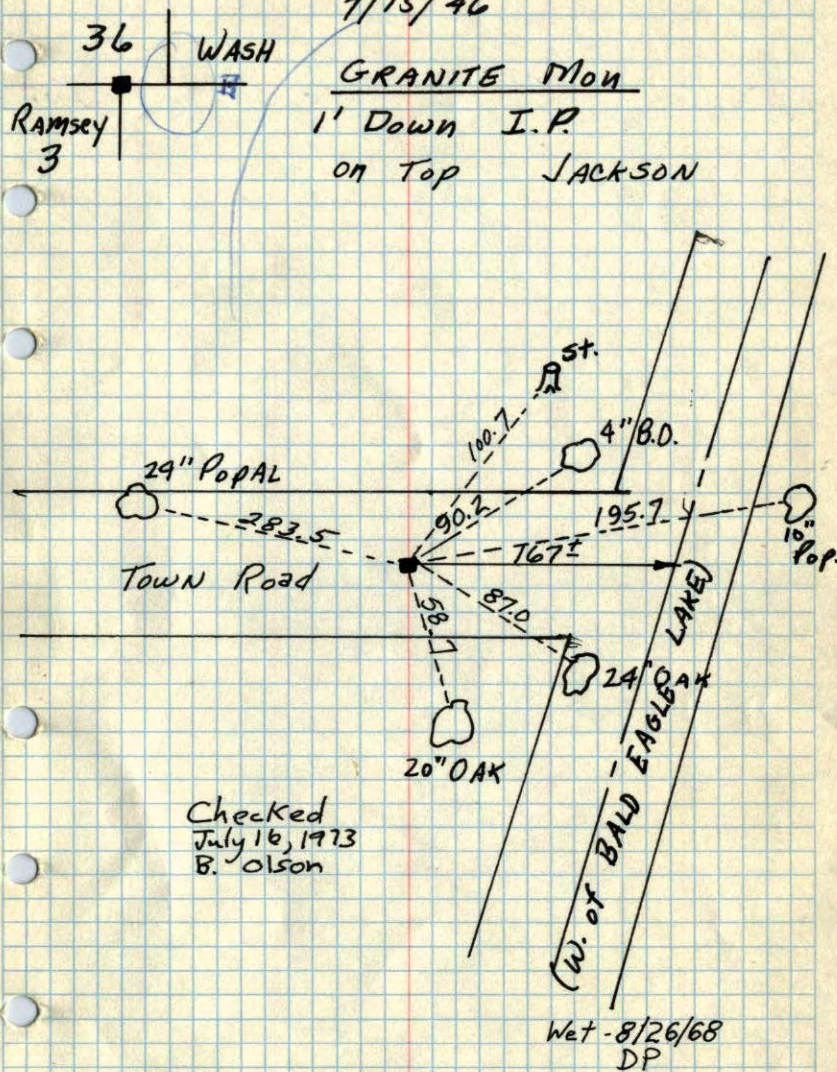 7/15/46
36 WASH
Ramsey
3
GRANITE Mon
1' Down I.P.
on Top JACKSON
St.
100.7
4" B.D.
90.2
24" POPAL
283.5
195.7
10" Pop.
Town Road
167±
87.0
58.7
24" OAK
20" OAK
(W. of BALD EAGLE LAKE)
Checked
July 16, 1973
B. Olson
Wet - 8/26/68
DP